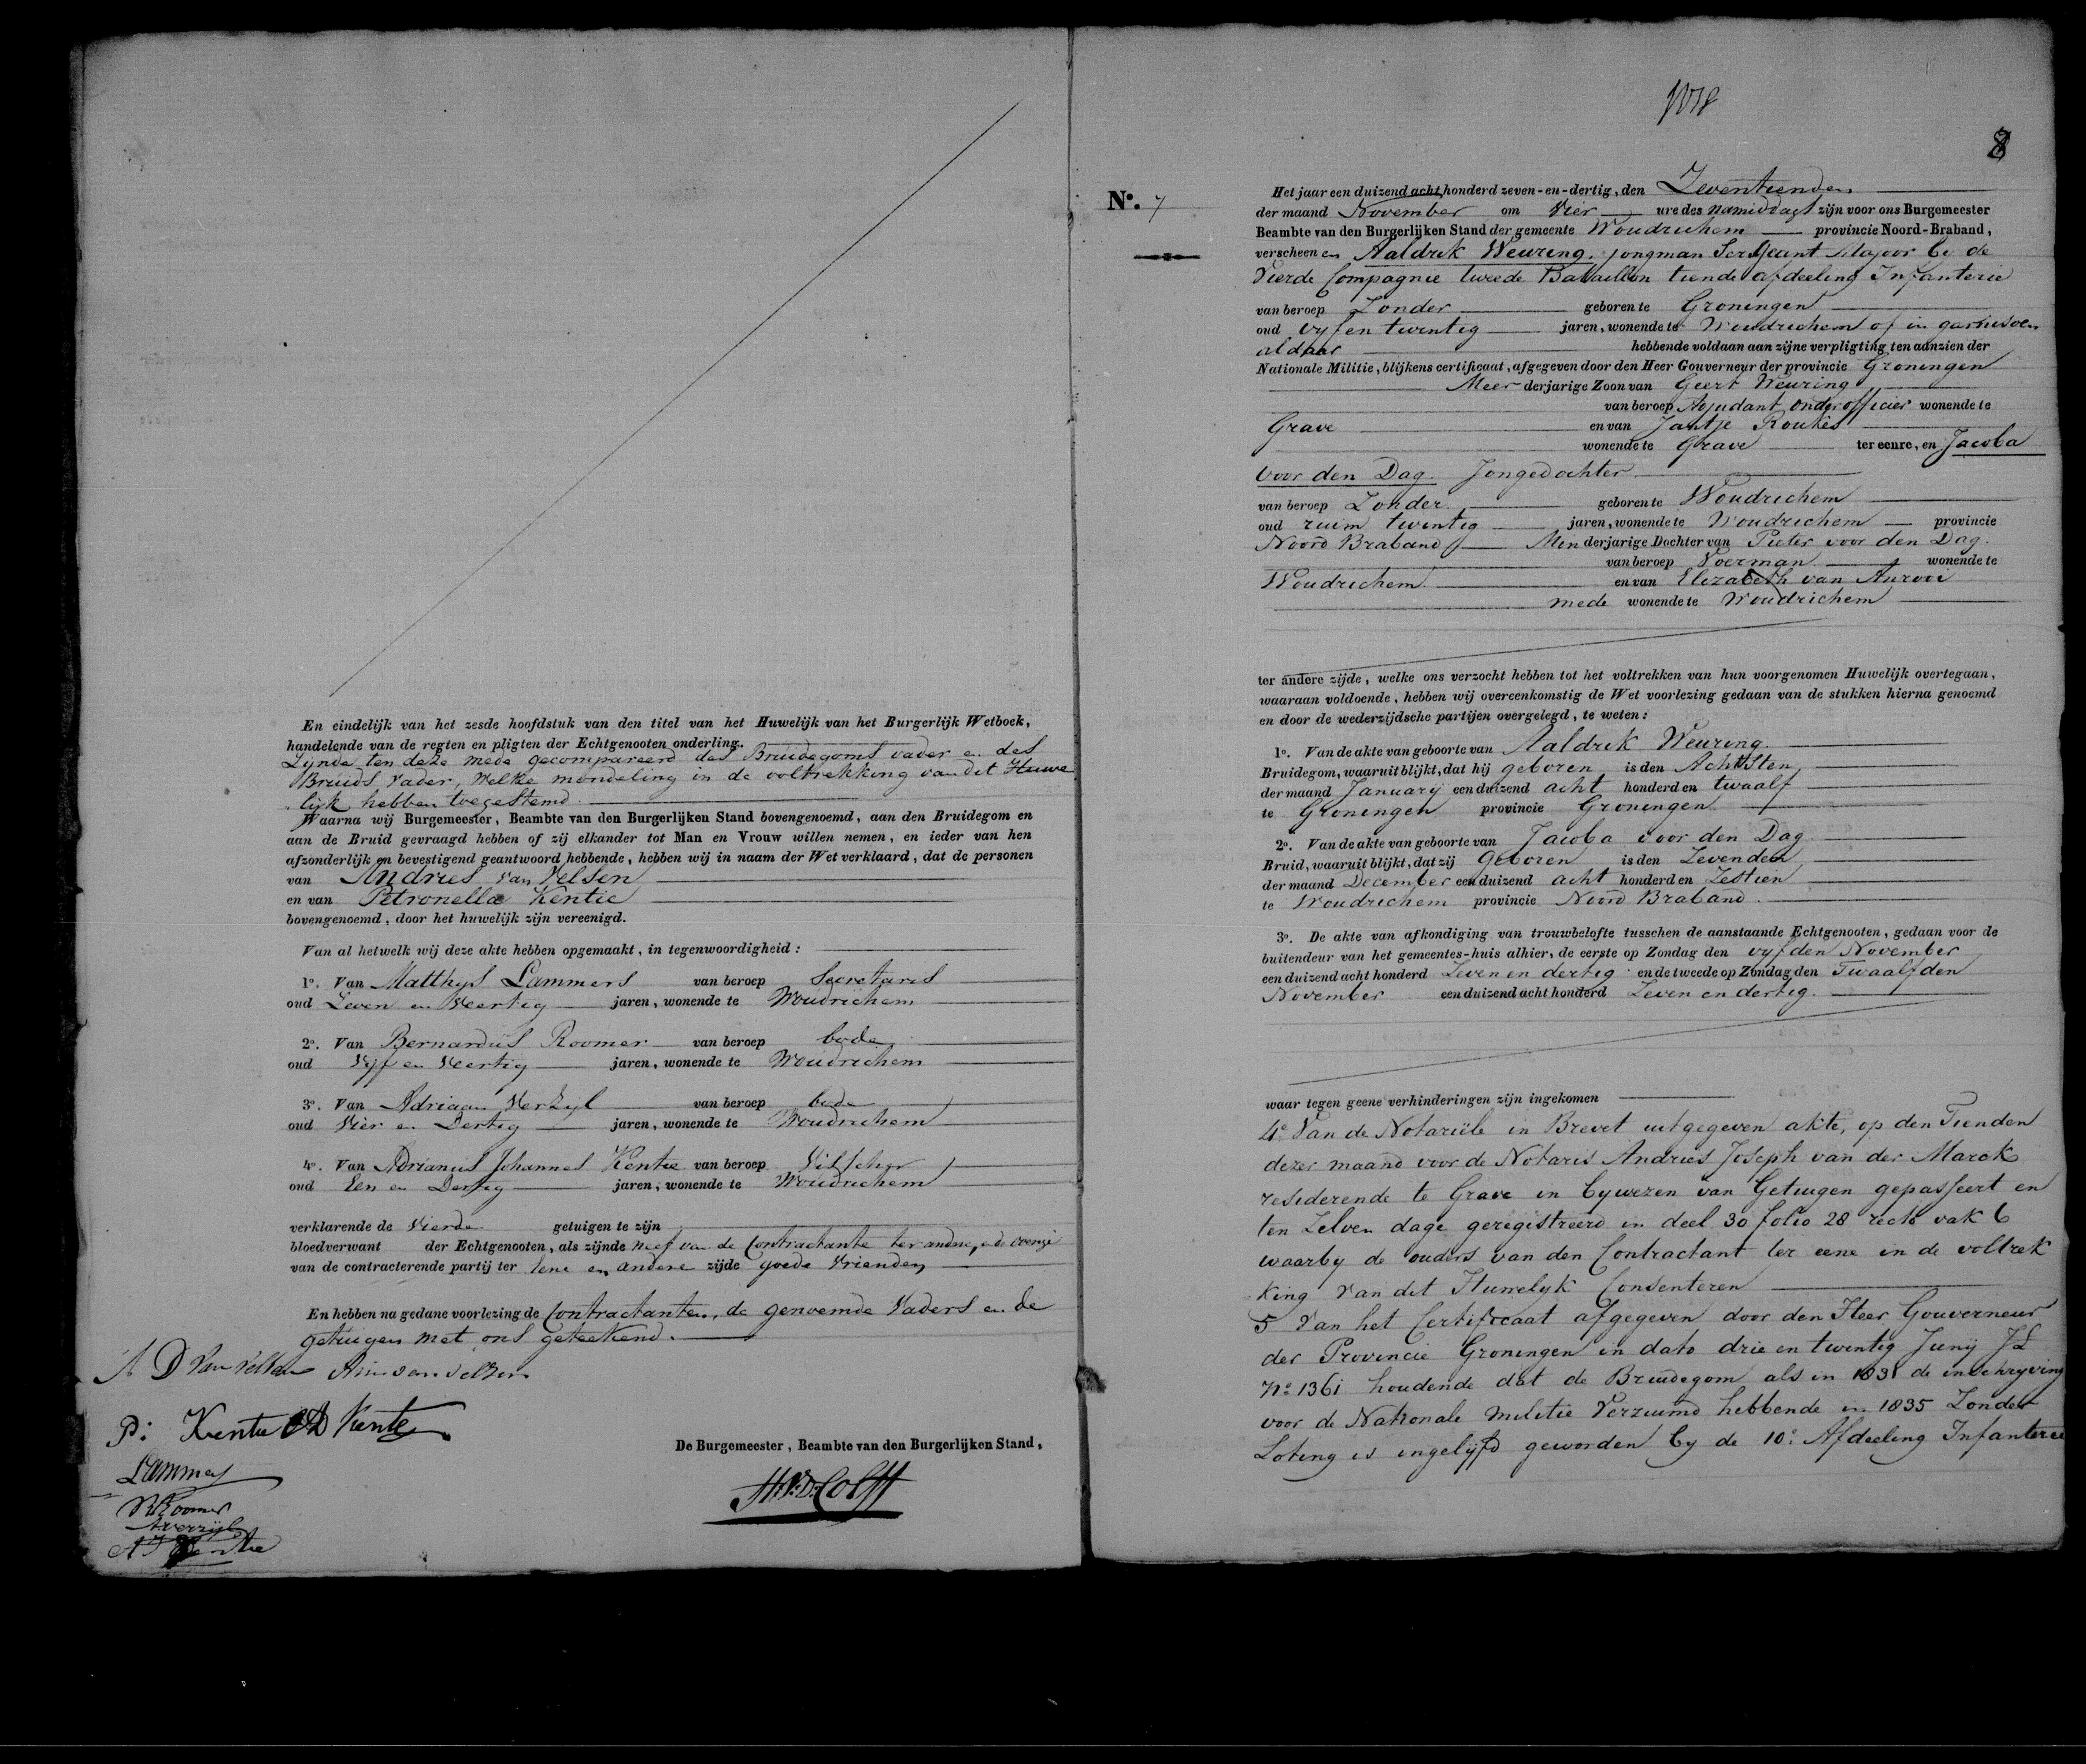 En eindelijk van het zesde hoofdstuk van den titel van het Huwelijk van het Burgerlijk Wetboek,
handelende van de regten en pligten der Echtgenooten onderling.
Zynde ten deze mede gecompareerd des Bruidegoms vader en des
Bruids Vader, Welke mondeling in de voltrekking van dit Huwe
lijk hebben toegestemd.
Waarna wij Burgemeester, Beambte van den Burgerlijken Stand bovengenoemd, aan den Bruidegom en
aan de Bruid gevraagd hebben of zij elkander tot Man en Vrouw willen nemen, en ieder van hen
afzonderlijk en bevestigend geantwoord hebbende, hebben wij in naam der Wet verklaard, dat de personen
van Andries van Velsen
en van Petronella Kentie
bovengenoemd, door het huwelijk zijn vereenigd.
Van al hetwelk wij deze akte hebben opgemaakt, in tegenwoordigheid:
1o. Van Matthys Lammers van beroep Secretaris
oud Zeven en Veertig jaren, wonende te Woudrichem
2o. Van Bernardus Roomer van beroep bode
oud Vyf en Veertig jaren, wonende te Woudrichem
3o. Van Adriaan Verzyl van beroep bode
oud Vier en Dertig jaren, wonende te Woudrichem
4o. Van Adrianus Johannes Kentie van beroep Visscher
oud Een en Dertig jaren, wonende te Woudrichem
verklarende de Vierde getuigen te zijn
bloedverwant der Echtgenooten, als zijnde neef van de Contractante ter andre, en de overige
van de contracterende partij ter eene en andere zijde goede Vrienden
En hebben na gedane voorlezing de Contractanten, de genoemde Vaders en de
getuigen met ons geteekend.
A D Van Velsen
P: Kentie A D Kentie
Lammers
B Roomer
A Verzijl
A J Kentie
De Burgemeester, Beambte van den Burgerlijken Stand,
8
No. 7
Het jaar een duizend acht honderd zeven-en-dertig, den Zeventienden
der maand November om Vier ure des namiddags zijn voor ons Burgemeester
Beambte van den Burgerlijken Stand der gemeente Woudrichem provincie Noord-Braband,
verscheenen Aaldrik Weuring. jongman Sergeant Majoor by de
Vierde Compagnie tweede Bataillon tiende afdeeling Infanterie
van beroep Zonder geboren te Groningen
oud vyf en twintig jaren, wonende te Woudrichem of in garnisoen
aldaar hebbende voldaan aan zijne verpligting ten aanzien der
Nationale Militie, blijkens certificaat, afgegeven door den Heer Gouverneur der provincie Groningen
Meer derjarige Zoon van Geert Weuring
van beroep Adjudant onderofficier wonende te
Grave en van Jantje Roukes
wonende te Grave ter eenre, en Jacoba
voor den Dag. Jongedochter
van beroep Zonder. geboren te Woudrichem
oud ruim twintig jaren, wonende te Woudrichem provincie
Noord Braband Min derjarige Dochter van Pieter voor den Dag.
van beroep Voerman wonende te
Woudrichem en van Elizabeth van Anrooi
mede wonende te Woudrichem
ter andere zijde, welke ons verzocht hebben tot het voltrekken van hun voorgenomen Huwelijk overtegaan,
waaraan voldoende, hebben wij overeenkomstig de Wet voorlezing gedaan van de stukken hierna genoemd
en door de wederzijdsche partijen overgelegd, te weten:
1o. Van de akte van geboorte van Aaldrik Weuring.
Bruidegom, waaruit blijkt, dat hij geboren is den Achtsten
der maand January een duizend acht honderd en twaalf
te Groningen provincie Groningen
2o. Van de akte van geboorte van Jacoba voor den Dag
Bruid, waaruit blijkt, dat zij geboren is den Zevenden
der maand December een duizend acht honderd en Zestien
te Woudrichem provincie Noord Braband.
3o. De akte van afkondiging van trouwbelofte tusschen de aanstaande Echtgenooten, gedaan voor de
buitendeur van het gemeentes-huis alhier, de eerste op Zondag den vyfden November
een duizend acht honderd Zeven en dertig en de tweede op Zondag den Twaalfden
November een duizend acht honderd Zeven en dertig.
waar tegen geene verhinderingen zijn ingekomen
4e Van de Notariële in Brevet uitgegeven akte, op den Tienden
dezer maand voor de Notaris Andries Joseph van der Marck
residerende te Grave in bywezen van Getuigen gepasseert en
ten Zelven dage geregistreerd in deel 30 folio 28 recto vak 6
waarby de ouders van den Contractant ter eene in de voltrek
king van dit Huwelyk Consenteren
5 Van het Certificaat afgegeven door den Heer Gouverneur
der Provincie Groningen in dato drie en twintig Juny JL
No 1361 houdende dat de Bruidegom als in 1831 de inschryving
voor de Nationale Militie Verzuimd hebbende in 1835 Zonder
Loting is ingelyfd geworden by de 10e Afdeeling Infanterie